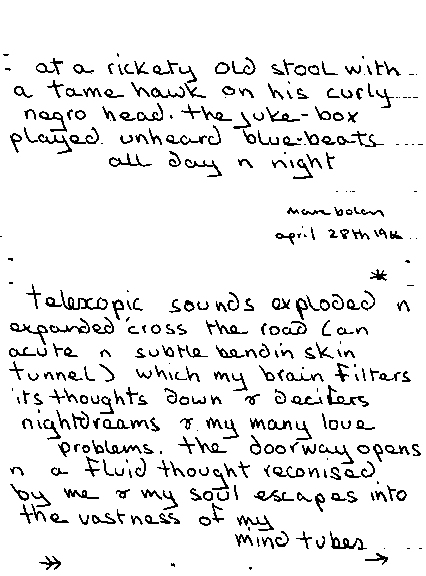 at a rickety old stool with
a tame hawk on his curly
negro head. the juke-box
played unheard blue-beats
all day n night
marc bolan
april 28th 1966
*
telexopic sounds exploded n
expanded 'cross the road (an
acute n subtle bendin skin
tunnel) which my brain filters
its thoughts down & decifers
nightdreams & my many love
problems. the doorway opens
n a fluid thought reconised
by me & my soul escapes into
the vastness of my
mind tubes